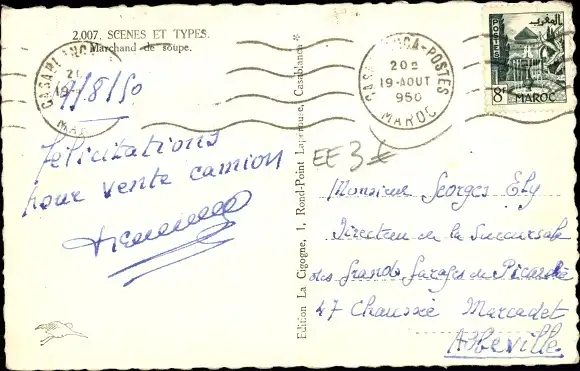 2.007. SCENES ET TYPES.
Marchand de soupe.
CASABLANCA
CASABLANCA-POSTES
20H
19-AOUT
950
MAROC
المغرب
POSTES
8F MAROC
9/8/50
félicitations
pour vente camion
EE 3 €
Edition La Cigogne, 1, Rond-Point Lapérouse, Casablanca
Monsieur Georges Ely
Directeur de la Succursale
des Grands Garages de Picardie
47 Chaussée Marcadet
Abbeville